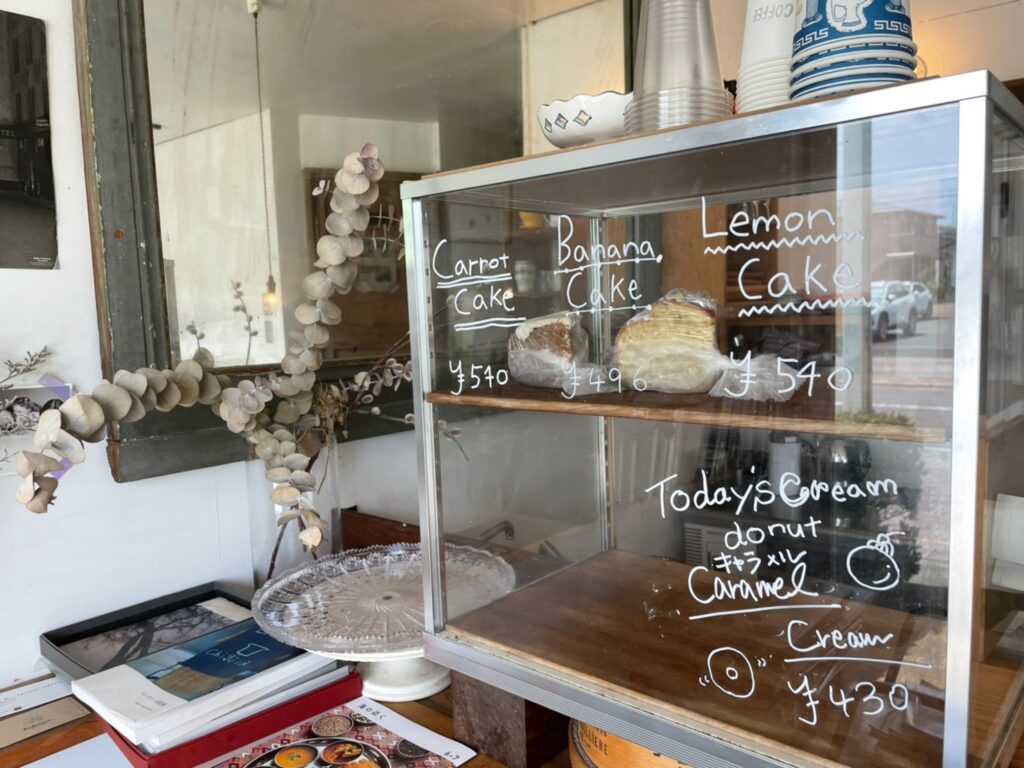 COFFEE
Carrot
Cake
¥540
Banana
Cake
¥496
Lemon
Cake
¥540
Today's Cream
donut
キャラメル
Caramel
Cream
¥430